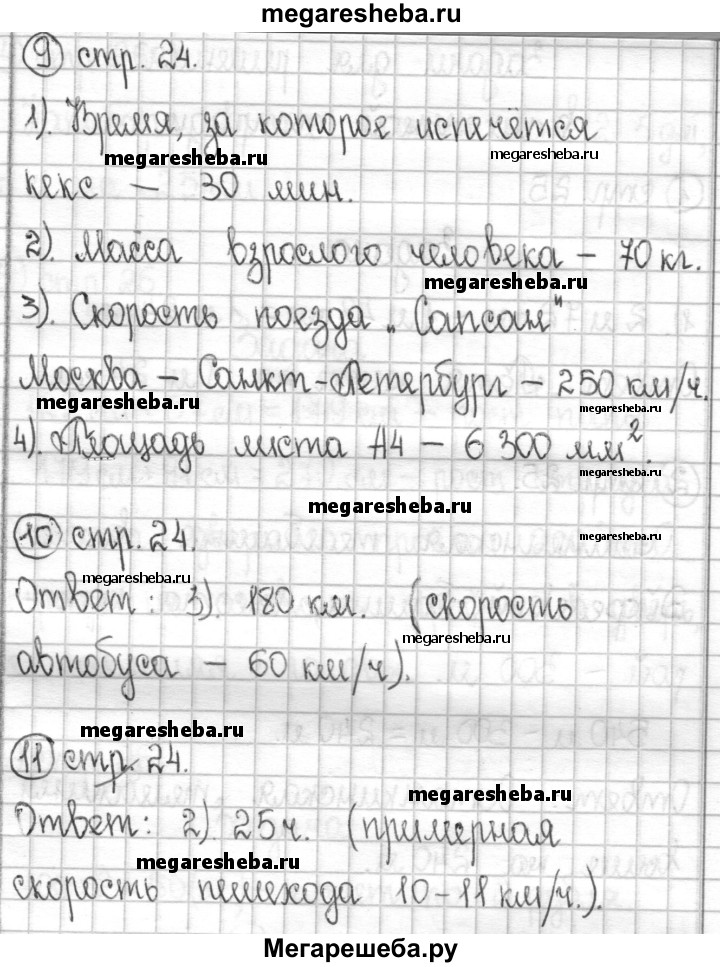 megaresheba.ru
9 стр. 24.
1). Время, за которое испечётся
megaresheba.ru megaresheba.ru
кекс — 30 мин.
2). Масса взрослого человека – 70 кг.
megaresheba.ru
3). Скорость поезда „Сапсан"
Москва – Санкт-Петербург – 250 км/ч.
megaresheba.ru megaresheba.ru
4). Площадь листа А4 – 6 300 мм².
megaresheba.ru
megaresheba.ru
10 стр. 24.
megaresheba.ru
megaresheba.ru
Ответ: 3). 180 км. (скорость
megaresheba.ru
автобуса – 60 км/ч).
megaresheba.ru
11 стр. 24.
megaresheba.ru
Ответ: 2). 25 ч. (примерная
megaresheba.ru
скорость пешехода 10-11 км/ч.).
Мегарешеба.ру